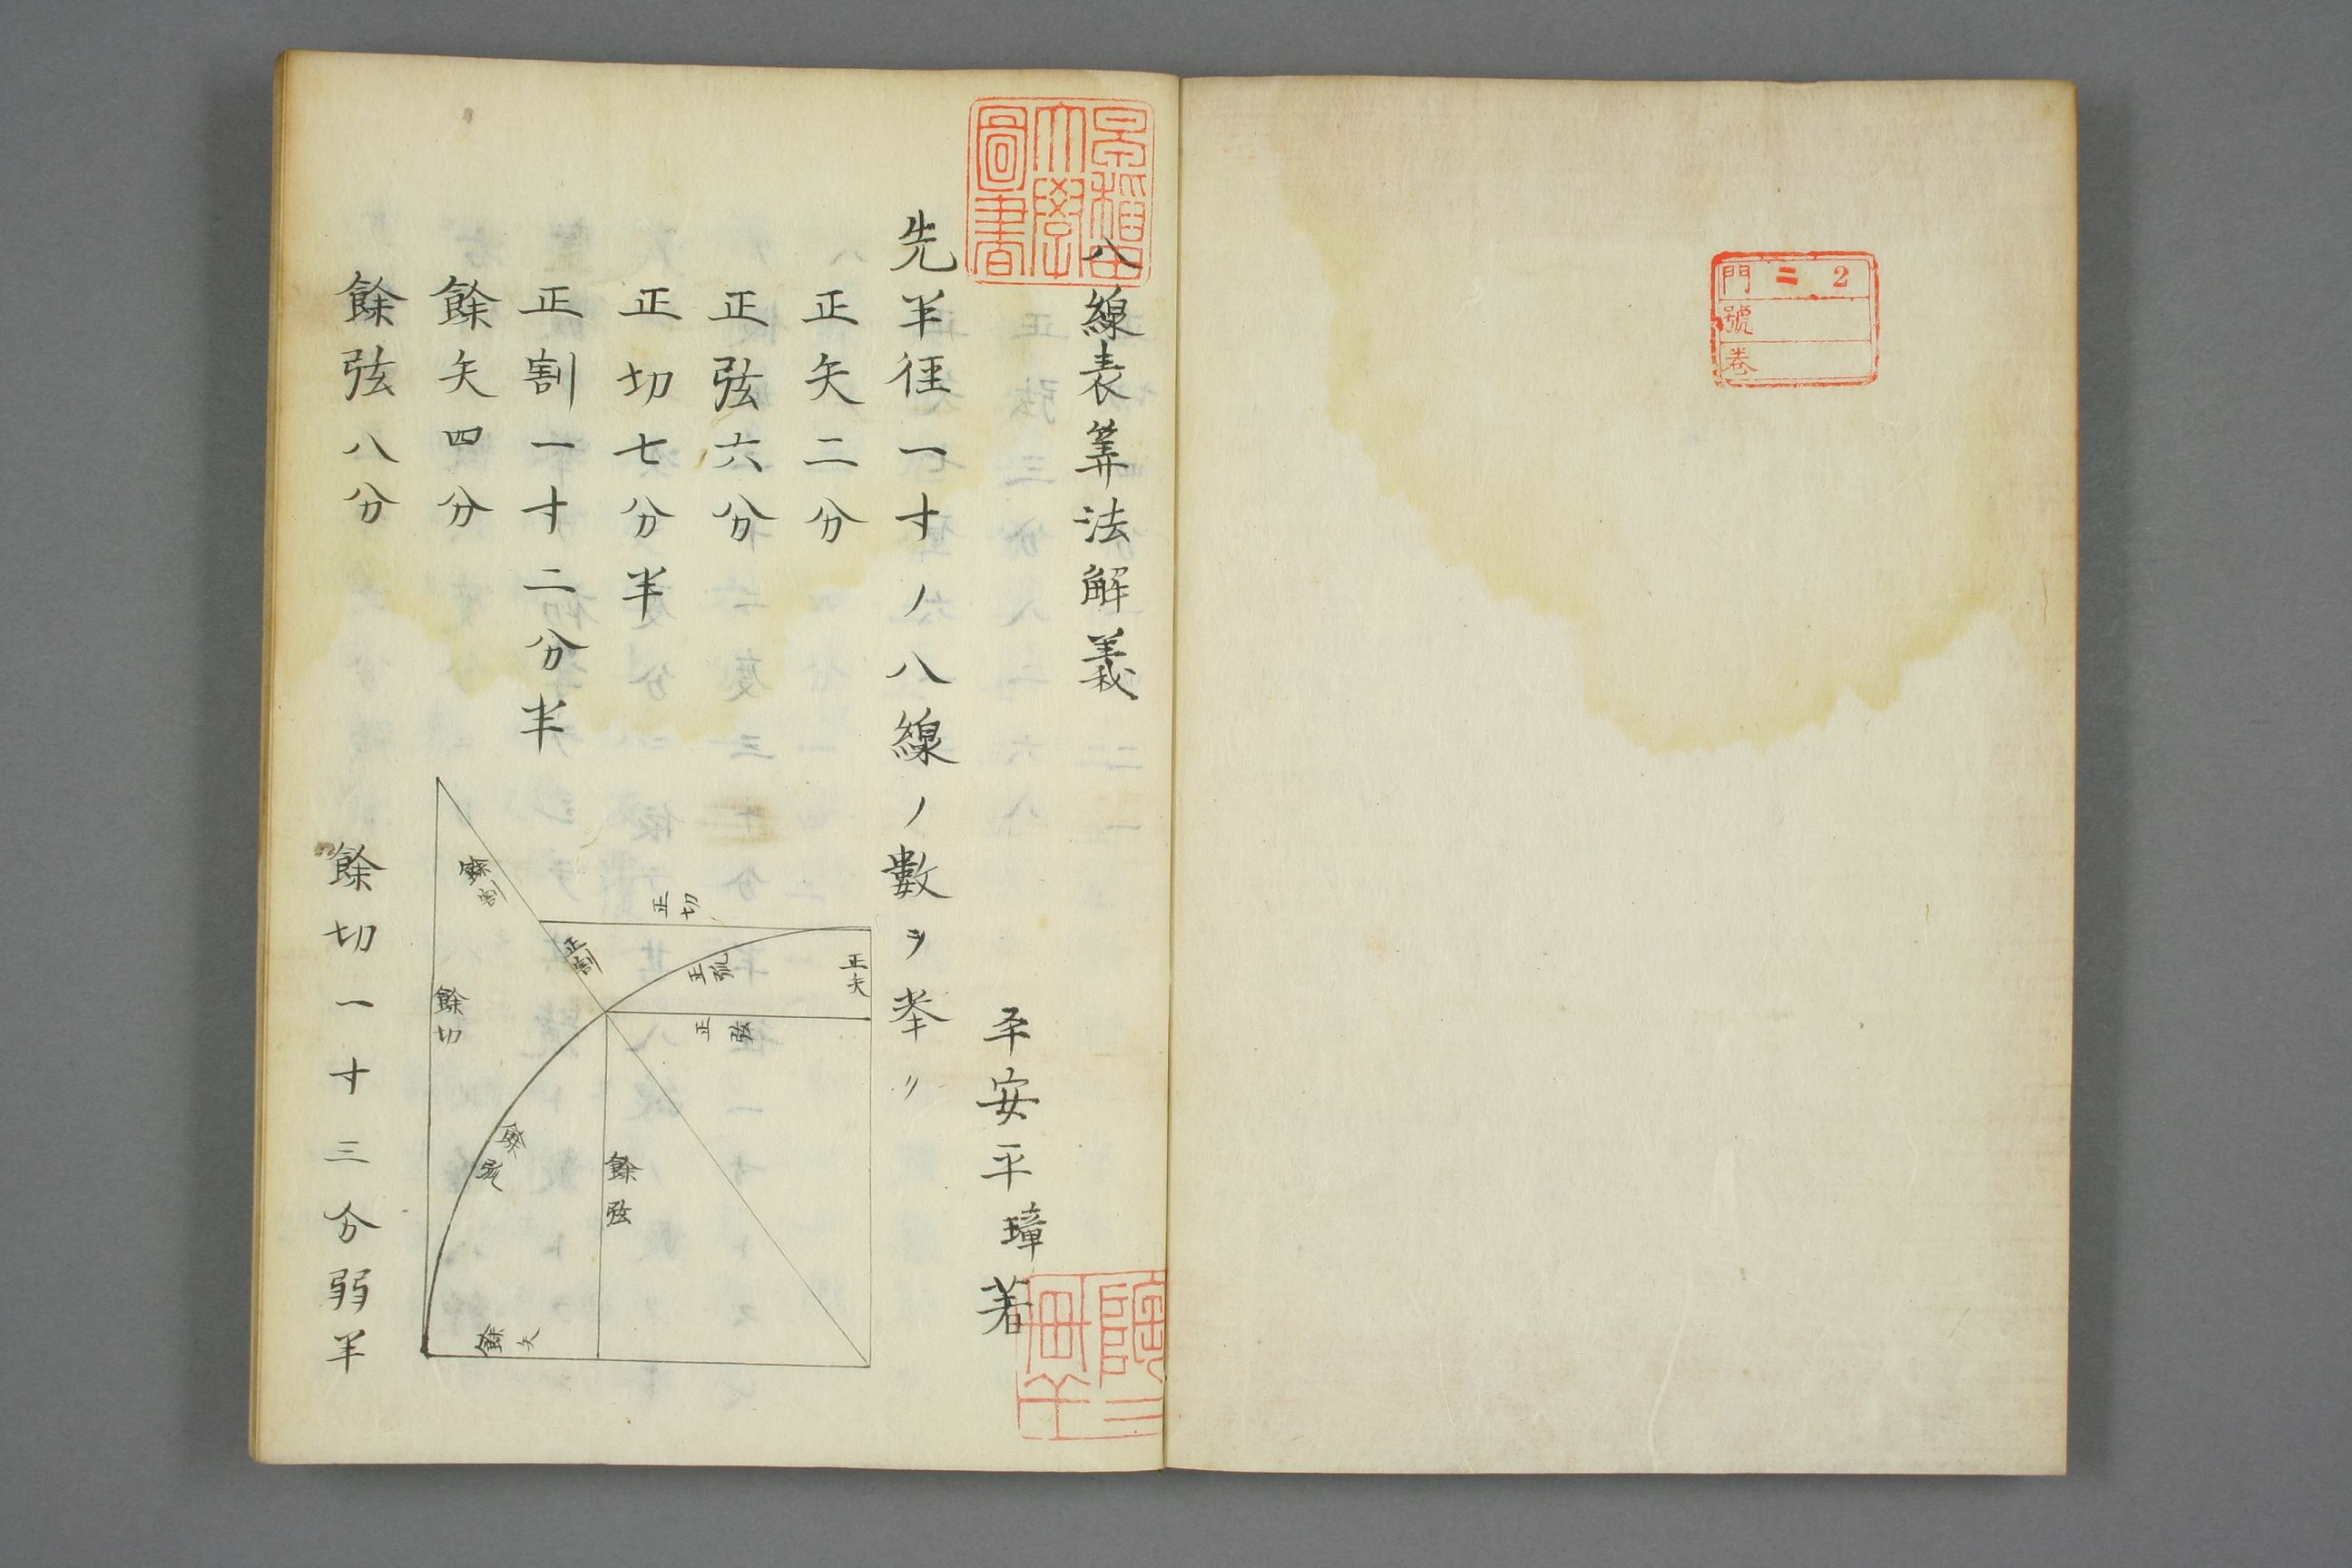 門 二 2
號
卷
早稲田
大學
圖書
八線表筭法解義
平安平璋著
先半徑一寸ノ八線ノ數ヲ挙リ
正矢二分
正弦六分
正切七分半
正割一寸二分半
餘矢四分
餘弦八分
餘切一寸三分弱半
正切
正矢
正弧
正割
正弦
餘割
餘切
餘弧
餘弦
餘矢